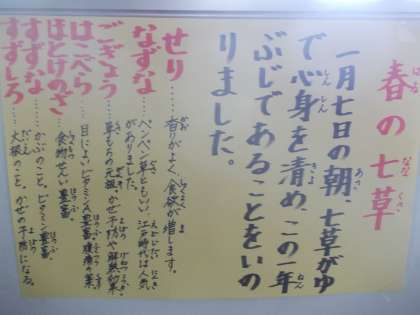 春の七草
一月七日の朝、七草がゆ
で心身を清め、この一年
ぶじであることをいの
りました。
せり……香りがよく、食欲が増します。
なずな……ペンペン草ともいい、江戸時代は人気
がありました。
ごぎょう……草もちの元祖。かぜ予防や解熱効果。
はこべら……目によいビタミンA豊富。腹痛の薬。
ほとけのざ……食物せんい豊富
すずな……かぶのこと。ビタミン豊富。
すずしろ……大根のこと。かぜの予防になる。